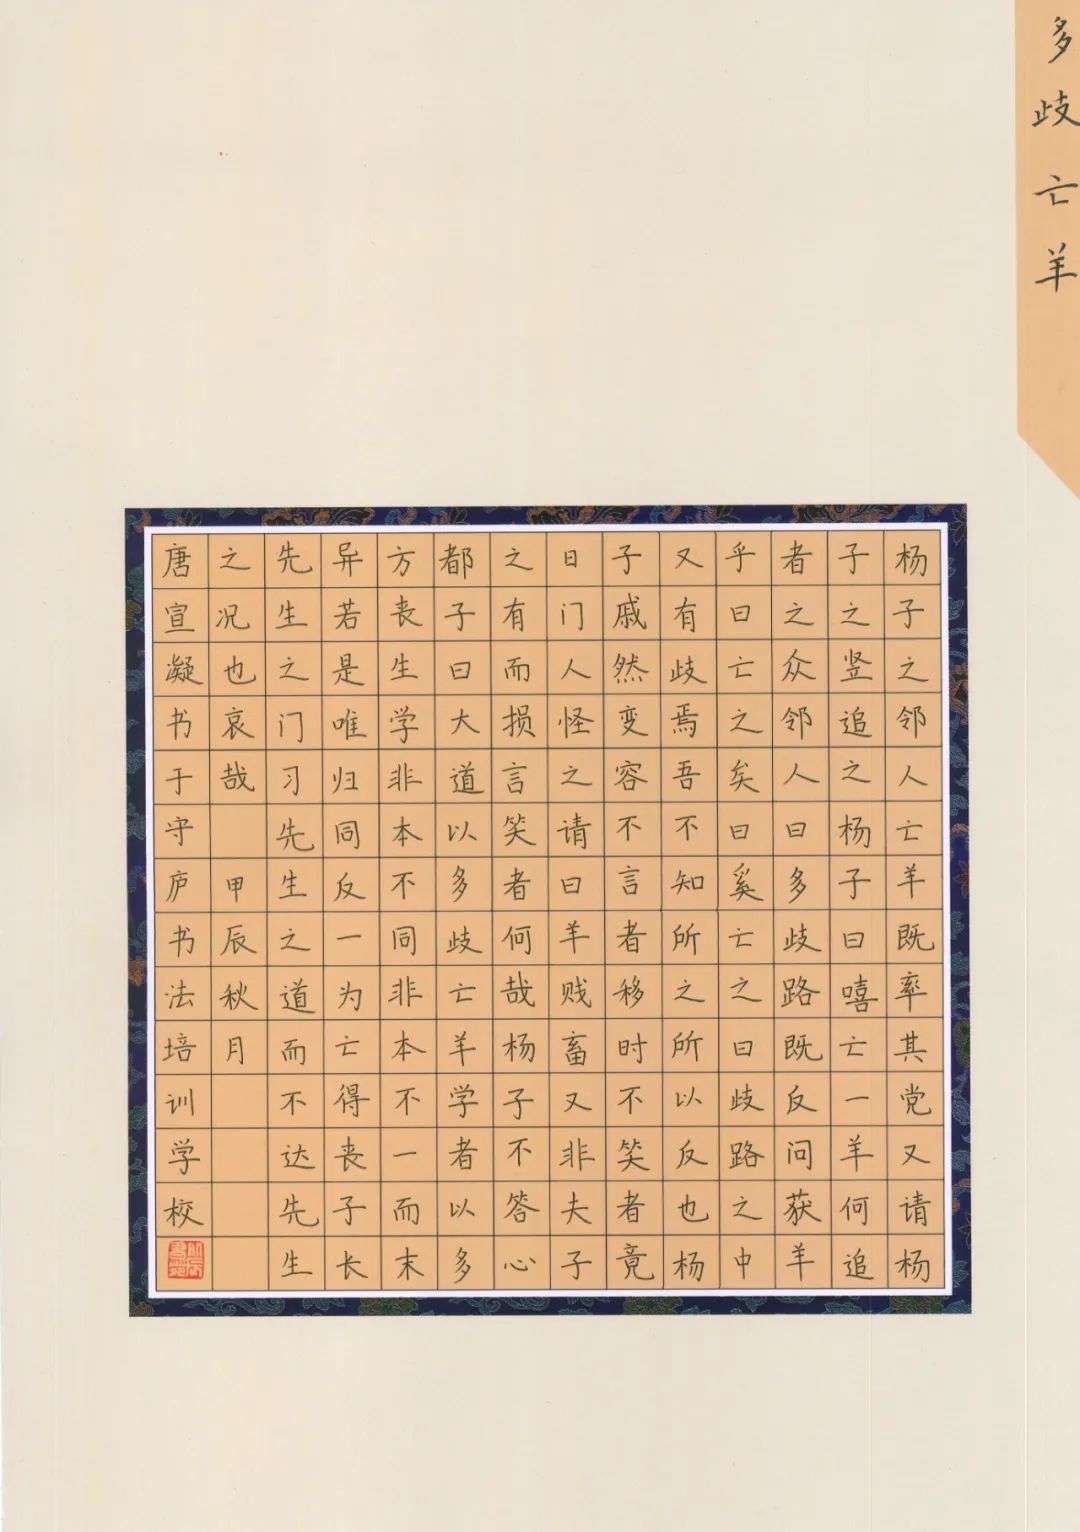 多歧亡羊
杨子之邻人亡羊既率其党又请杨
子之竖追之杨子曰嘻亡一羊何追
者之众邻人曰多歧路既反问获羊
乎曰亡之矣曰奚亡之曰歧路之中
又有歧焉吾不知所之所以反也杨
子戚然变容不言者移时不笑者竟
日门人怪之请曰羊贱畜又非夫子
之有而损言笑者何哉杨子不答心
都子曰大道以多歧亡羊学者以多
方丧生学非本不同非本不一而末
异若是唯归同反一为亡得丧子长
先生之门习先生之道而不达先生
之况也哀哉 甲辰秋月
唐宣凝书于守庐书法培训学校